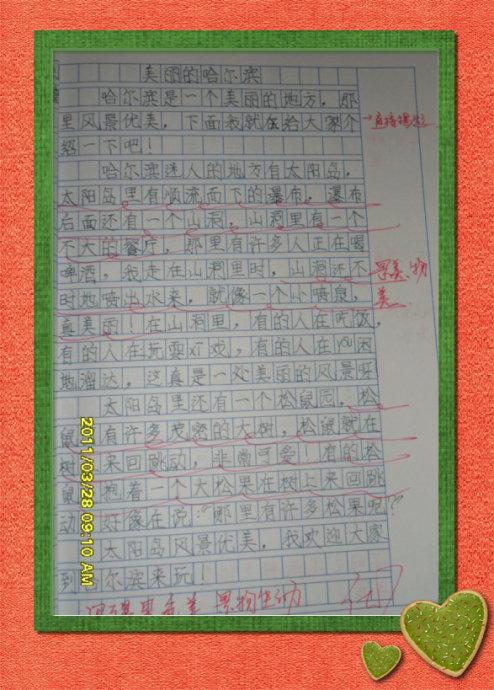 美丽的哈尔滨
哈尔滨是一个美丽的地方，那
里风景优美，下面我就在给大家介
绍一下吧！
哈尔滨迷人的地方有太阳岛，
太阳岛里有顺流而下的瀑布，瀑布
后面还有一个山洞，山洞里有一个
不大的餐厅，那里有许多人正在喝
啤酒，我走在山洞里时，山洞还不
时地喷出水来，就像一个小喷泉，
真美丽！在山洞里，有的人在吃饭，
有的人在玩耍xī戏，有的人在yōu闲
地溜达，这真是一处美丽的风景呀
太阳岛里还有一个松鼠园，松
鼠 有许多茂密的大树，松鼠就在
树 来回跳动，非常可爱！有的松
鼠 抱着一个大松果在树上来回跳
动 好像在说："哪里有许多松果呢？"
太阳岛风景优美，我欢迎大家
到哈尔滨来玩！
景美、物
美
景物生动
2011/03/28 09:10 AM